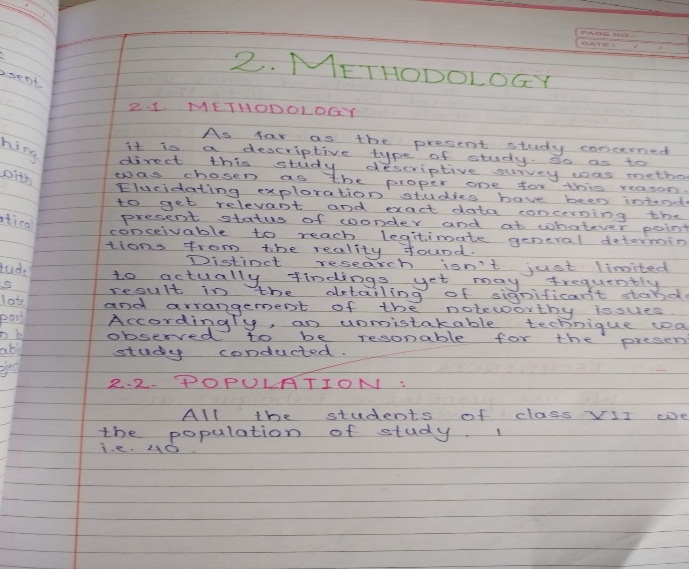 PAGE NO.:
DATE: / /
2. METHODOLOGY
2.1. METHODOLOGY
As far as the present study concerned
it is a descriptive type of study. So as to
direct this study descriptive survey was metho
was chosen as the proper one for this reason.
Elucidating exploration studies have been intende
to get relevant and exact data concerning the
present status of wonder and at whatever point
conceivable to reach legitimate general determin
tions from the reality found.
Distinct research isn't just limited
to actually findings yet may frequently
result in the detailing of significant stand
and arrangement of the noteworthy issues.
Accordingly, an unmistakable technique wa
observed to be resonable for the presen
study conducted.
2.2. POPULATION :
All the students of class VII we
the population of study.
i.e. 40